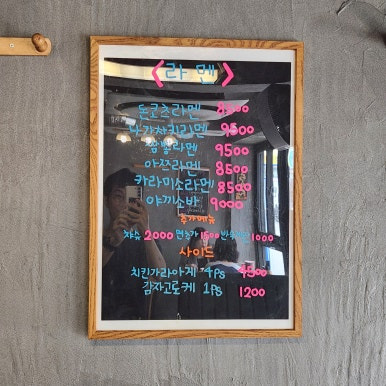 <라멘>
돈코츠라멘 8500
나가사키라멘 9500
라멘 9500
아쯔라멘 8500
카라미소라멘 8500
야끼소바 9000
추가메뉴
차슈 2000 면추가 1500 1000
사이드
치킨가라아게 4ps 4500
감자고로케 1ps 1200